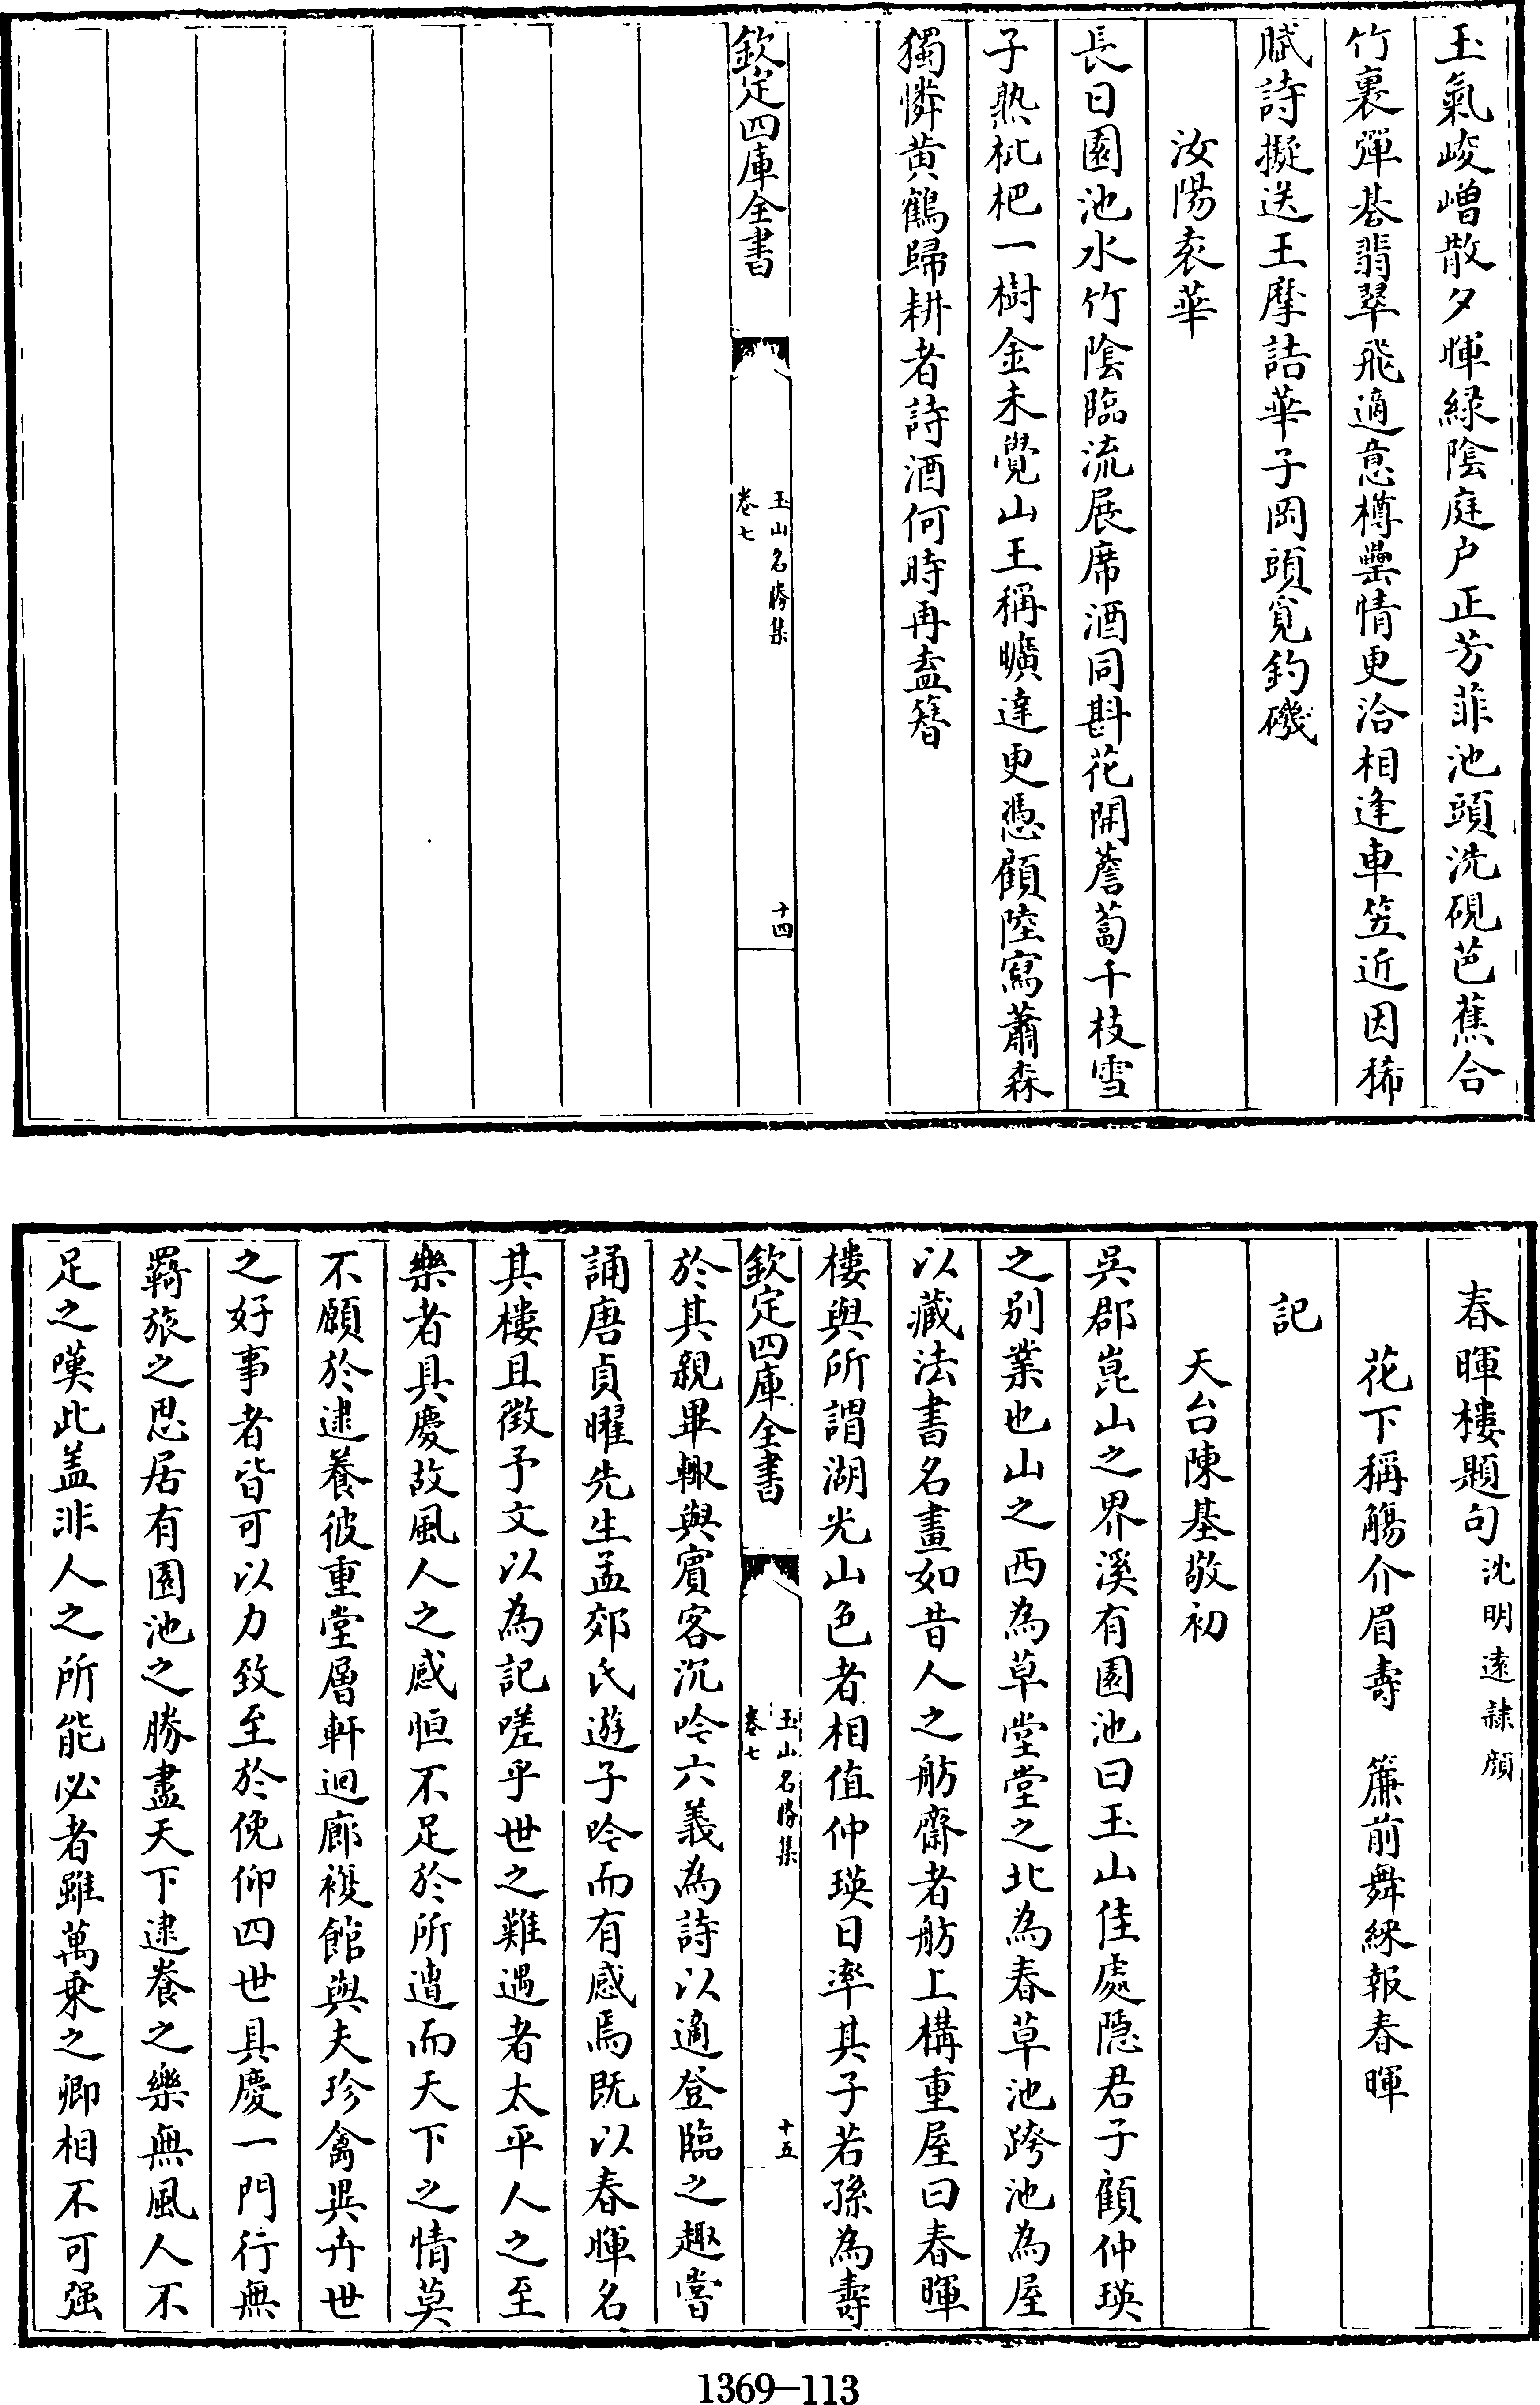 玉氣峻嶒散夕暉緑陰庭户正芳菲池頭洗硯芭蕉合
竹裏彈碁翡翠飛適意樽罍情更洽相逢車笠近因稀
賦詩擬送王摩詰華子岡頭覓釣磯
汝陽袁華
長日園池水竹陰臨流展席酒同斟花開薝蔔千枝雪
子熟枇杷一樹金未覺山王稱曠達更憑顧陸寫蕭森
獨憐黄鶴歸耕者詩酒何時再盍簪
欽定四庫全書
玉山名勝集
卷七
十四
春暉樓題句沈明遠隷顔
花下稱觴介眉壽 簾前舞綵報春暉
記
天台陳基敬初
吳郡崑山之界溪有園池曰玉山佳處隱君子顧仲瑛
之别業也山之西為草堂堂之北為春草池跨池為屋
以藏法書名畫如昔人之舫齋者舫上構重屋曰春暉
樓與所謂湖光山色者相值仲瑛日率其子若孫為壽
欽定四庫全書
玉山名勝集
卷七
十五
於其親畢輙與賓客沉吟六義為詩以適登臨之趣嘗
誦唐貞曜先生孟郊氏遊子吟而有感焉既以春暉名
其樓且徵予文以為記嗟乎世之難遇者太平人之至
樂者具慶故風人之感恒不足於所遭而天下之情莫
不願於逮養彼重堂層軒迴廊複館與夫珍禽異卉世
之好事者皆可以力致至於俛仰四世具慶一門行無
羇旅之思居有園池之勝盡天下逮養之樂無風人不
足之嘆此盖非人之所能必者雖萬乗之卿相不可强
1369-113